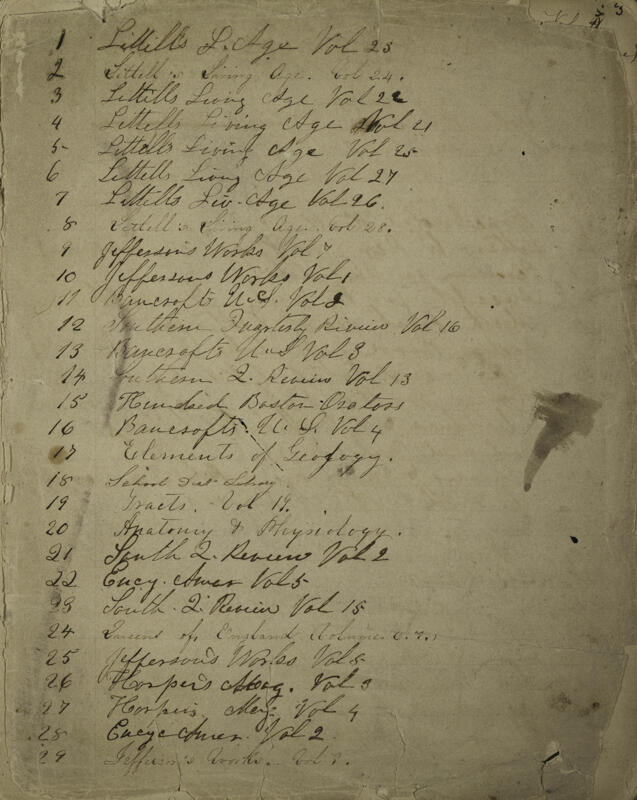 1 Littells L. Age Vol 23
2 Littell's Living Age. Vol 24.
3 Littells Living Age Vol 22
4 Littells Living Age Vol 21
5 Littells Living Age Vol 25
6 Littells Living Age Vol 27
7 Littells Liv. Age Vol 26.
8 Littell's Living Age. Vol 28.
9 Jeffersons Works Vol 7
10 Jeffersons Works Vol 1
11 Bancrofts U.S. Vol 2
12 Southern Quarterly Review Vol 16
13 Bancrofts U.S Vol 3
14 Southern Q. Review Vol 13
15 Hundred Boston Orators
16 Bancrofts. U.S. Vol 4
17 Elements of Geology.
18 School
19 Tracts. Vol 19.
20 Anatomy & Physiology.
21 South Q. Review Vol 2
22 Ency. Amer Vol 5
23 South. Q. Review Vol 15
24 Queens of England Volume
25 Jefferson's Works Vol
26 Harper's Mag. Vol 3
27 Harpers Mag Vol 4
28 Encyc Amer. Vol 2
29 Jefferson's Works. Vol